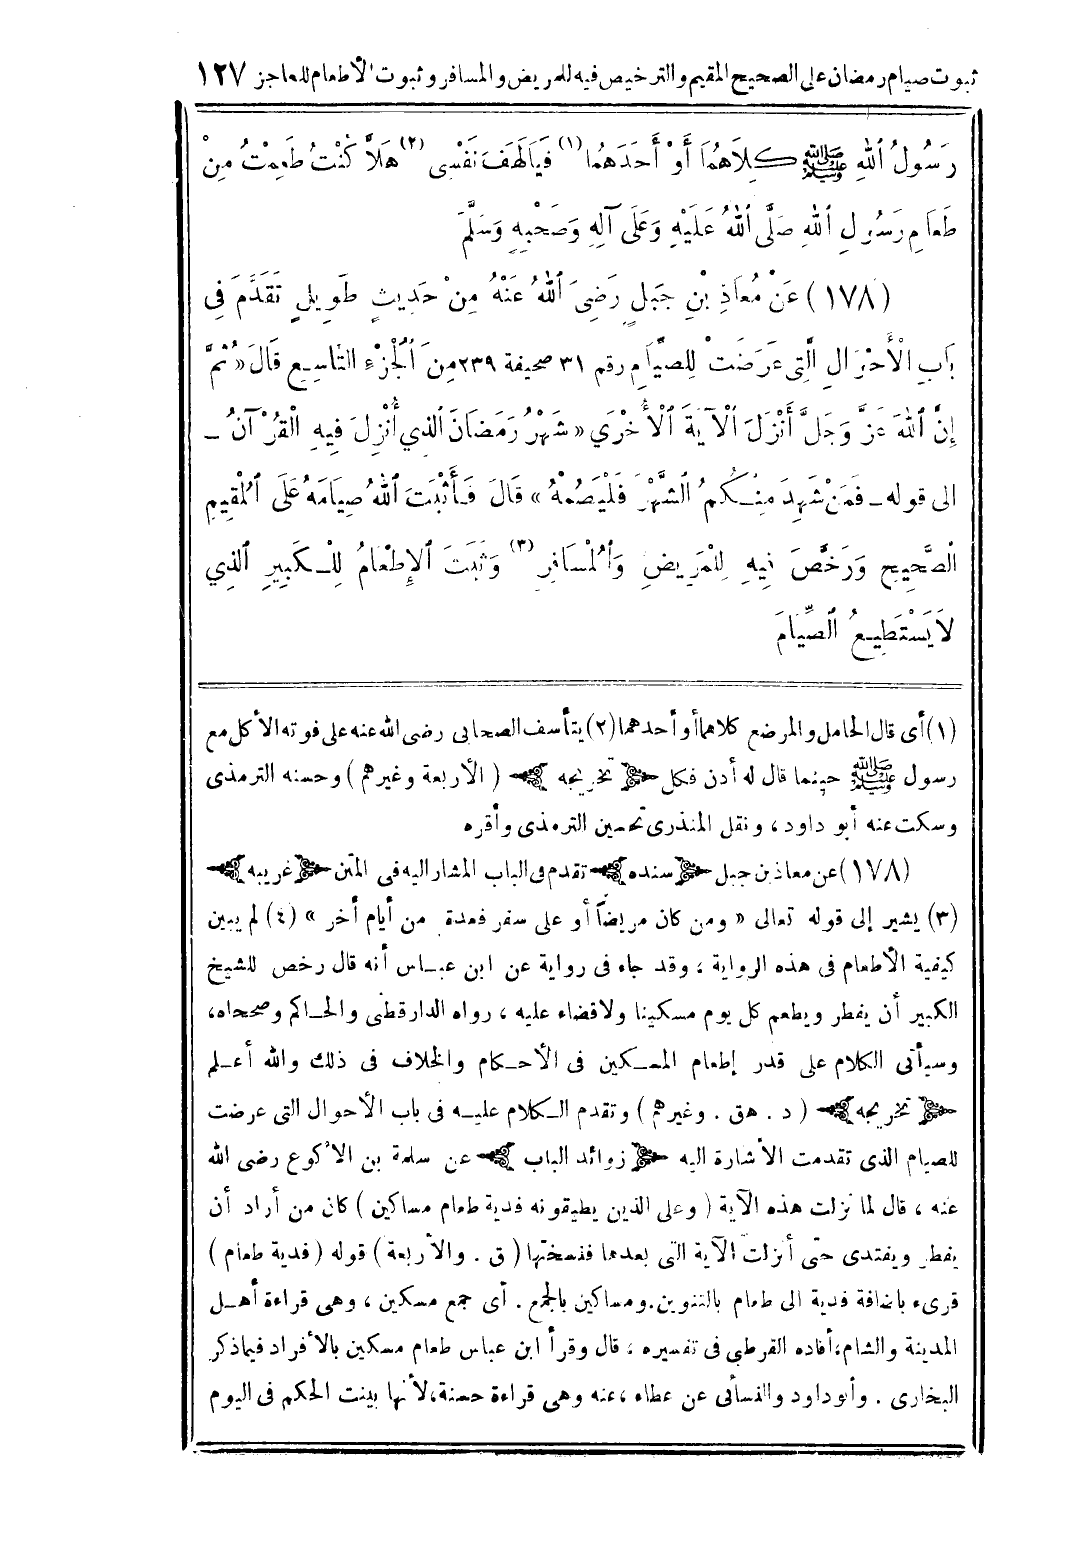 ثبوت صيام رمضان على الصحيح المقيم والترخيص فيه للمريض والمسافر وثبوت الأطعام للعاجز ١٢٧
رَسُولُ ٱللهِ ﷺ كِلَاهُمَا أَوْ أَحَدَهُمَا (١) فَيَالَهْفَ نَفْسِى (٢) هَلاَّ كُنْتُ طَعِمْتُ مِنْ
طَعَامِ رَسُولِ ٱللهِ صَلَّى ٱللهُ عَلَيْهِ وَعَلَى آلِهِ وَصَحْبِهِ وَسَلَّمَ
(١٧٨) عَنْ مُعَاذِ بْنِ جَبَلٍ رَضِىَ ٱللهُ عَنْهُ مِنْ حَدِيثٍ طَوِيلٍ تَقَدَّمَ فِى
بَابِ الْأَحْوَالِ الَّتِى عَرَضَتْ لِلصِّيَامِ رقم ٣١ صحيفة ٢٣٩ مِنَ ٱلْجُزْءِ التَّاسِعِ قَالَ «ثُمَّ
إِنَّ ٱللهَ عَزَّ وَجَلَّ أَنْزَلَ ٱلْآيَةَ ٱلْأُخْرَي «شَهْرُ رَمَضَانَ ٱلَّذِي أُنْزِلَ فِيهِ الْقُرْآنُ ــ
الى قوله ــ فَمَنْ شَهِدَ مِنْكُمُ الشَّهْرَ فَلْيَصُمْهُ» قَالَ فَأَثْبَتَ ٱللهُ صِيَامَهُ عَلَى ٱلْمُقِيمِ
الْصَّحِيحِ وَرَخَّصَ فِيهِ لِلْمَرِيضِ وَٱلْمُسَافِرِ (٣) وَثَبَتَ ٱلإِطْعَامُ لِلْكَبِيرِ ٱلَّذِي
لَا يَسْتَطِيعُ ٱلصِّيَامَ
(١) أى قال الحامل والمرضع كلاهما أو أحدهما (٢) يتأسف الصحابى رضى الله عنه على فوته الأكل مع
رسول ﷺ حينما قال له أدن فكل ﴿تخريجه﴾ (الأربعة وغيرهم) وحسنه الترمذى
وسكت عنه أبو داود، ونقل المنذرى تحسين الترمذى وأقره
(١٧٨) عن معاذ بن جبل ﴿سنده﴾ تقدم فى الباب المشار اليه فى المتن ﴿غريبه﴾
(٣) يشير إلى قوله تعالى « ومن كان مريضاً أو على سفر فعدة من أيام أخر » (٤) لم يبين
كيفية الأطعام فى هذه الرواية ، وقد جاء فى رواية عن ابن عباس أنه قال رخص للشيخ
الكبير أن يفطر ويطعم كل يوم مسكينا ولا قضاء عليه ، رواه الدارقطنى والحاكم وصححاه،
وسيأتى الكلام على قدر إطعام المسكين فى الأحكام والخلاف فى ذلك والله أعلم
﴿تخريجه﴾ ( د . هق . وغيرهم ) وتقدم الكلام عليه فى باب الأحوال التى عرضت
للصيام الذى تقدمت الأشارة اليه ﴿زوائد الباب﴾ عن سلمة بن الاكوع رضى الله
عنه ، قال لما نزلت هذه الآية ( وعلى الذين يطيقونه فدية طعام مساكين ) كان من أراد أن
يفطر ويفتدى حتى أنزلت الآية التى بعدها فنسختها ( ق . والأربعة ) قوله ( فدية طعام )
قرىء باضافة فدية الى طعام بالتنوين.ومساكين بالجمع . أى جمع مسكين ، وهى قراءة أهل
المدينة والشام،أفاده القرطبى فى تفسيره ، قال وقرأ ابن عباس طعام مسكين بالأفراد فيما ذكر
البخارى . وأبو داود والنسأئى عن عطاء ،عنه وهى قراءة حسنة،لأنها بينت الحكم فى اليوم